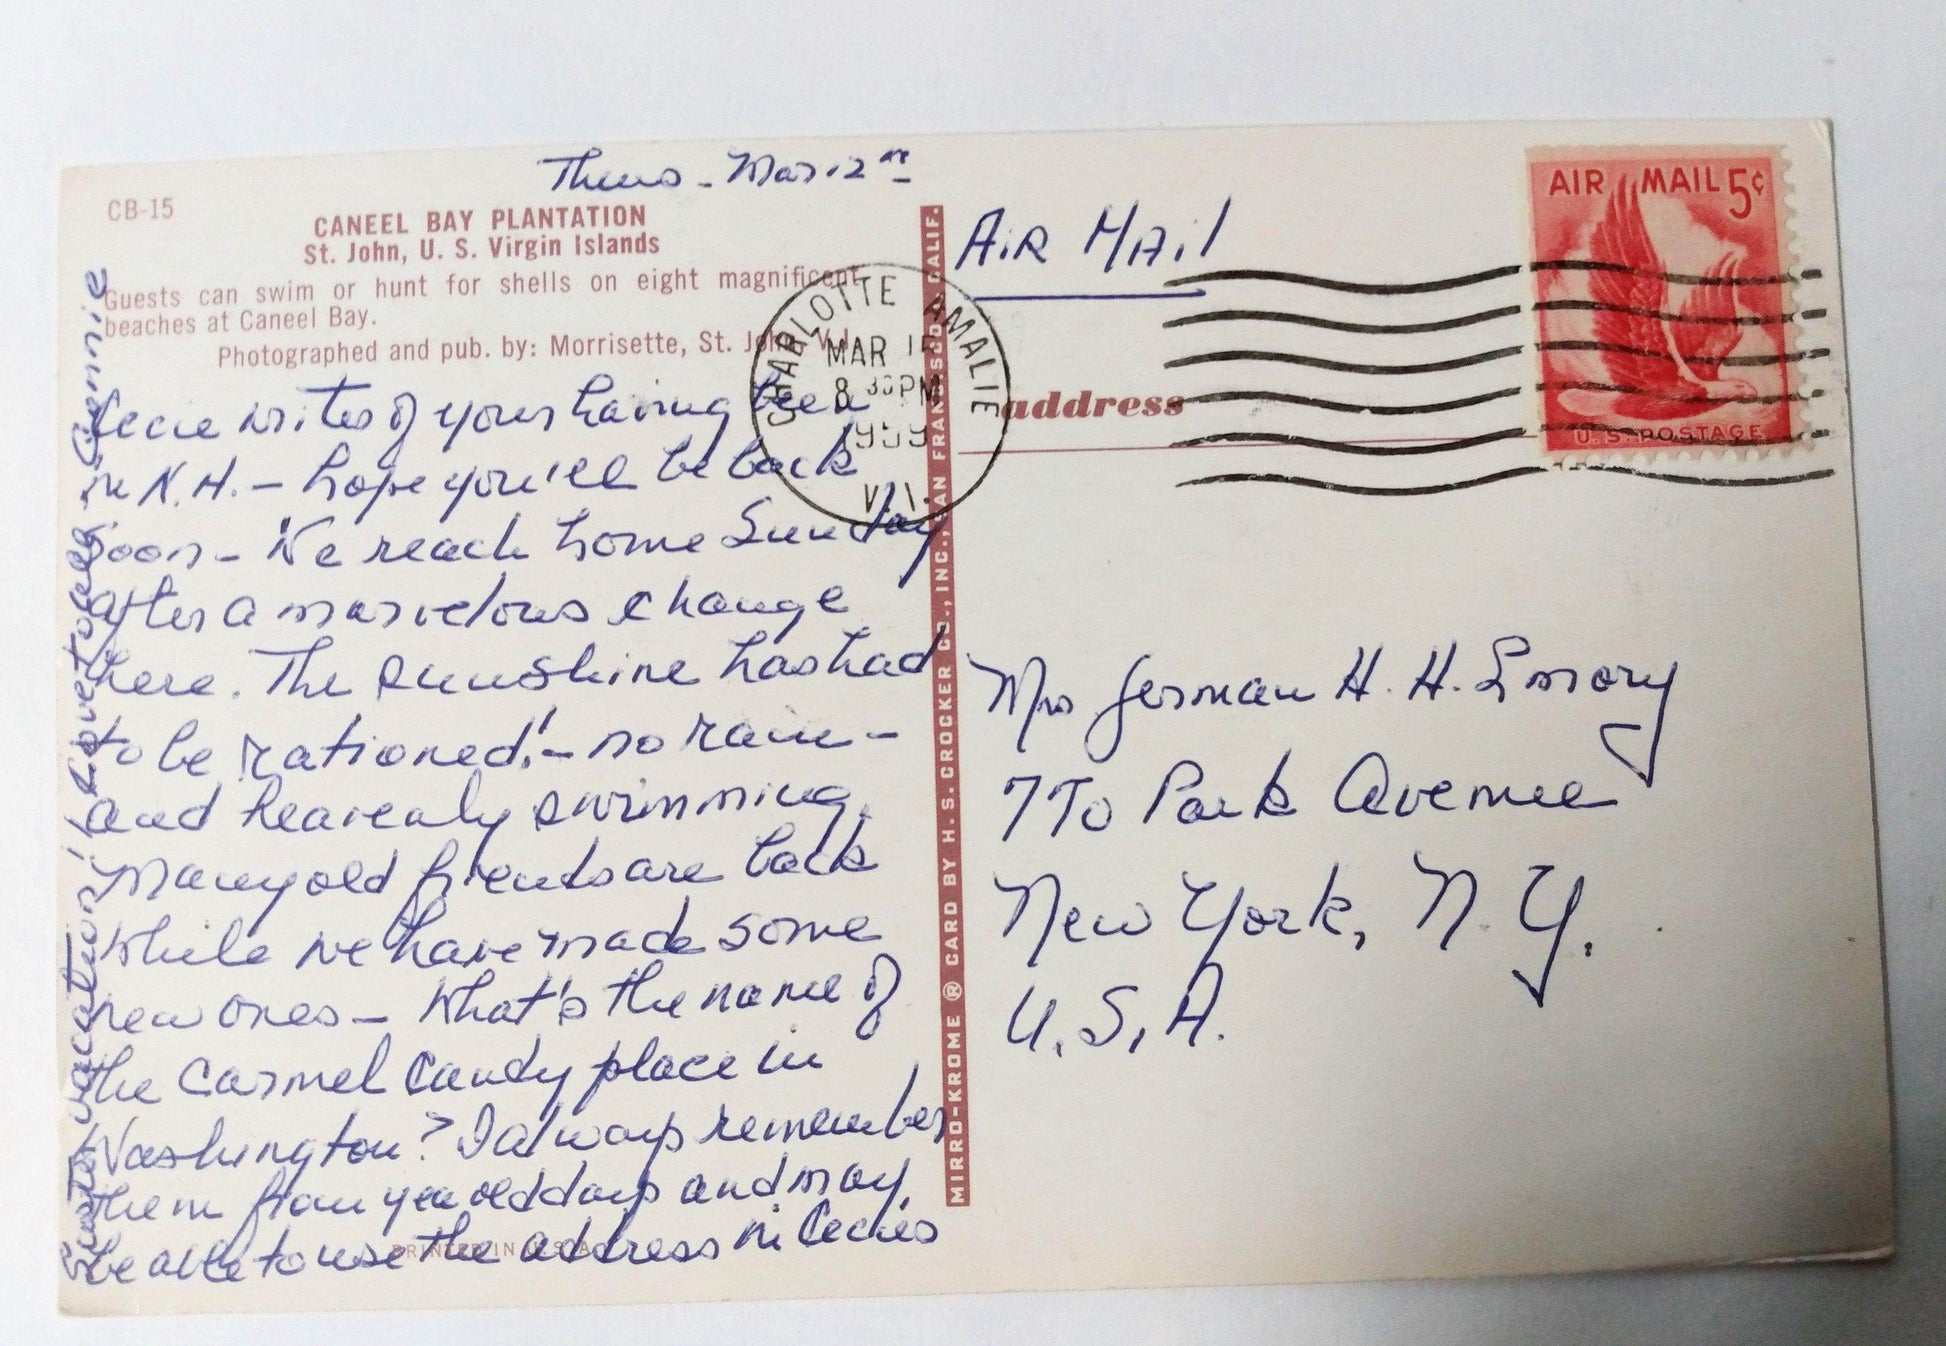 Thurs - Mar 12th
CB-15
CANEEL BAY PLANTATION
St. John, U. S. Virgin Islands
Guests can swim or hunt for shells on eight magnificent
beaches at Caneel Bay.
Photographed and pub. by: Morrisette, St. John, V.I.
Cecie writes of your having been
in N.H. - hope you'll be back
soon - We reach home Sunday
after a marvelous change
here. The sunshine has had
to be rationed! - no rain -
and heavenly swimming.
Many old friends are back
while we have made some
new ones - What's the name of
the Carmel Candy place in
Washington? I always remember
them from old days and may
be able to use the address in Cecie's
Easter vacation! Love to all - Connie
PRINTED IN U.S.A.
MIRRO-KROME ® CARD BY H. S. CROCKER CO., INC., SAN FRANCISCO, CALIF.
CHARLOTTE AMALIE
MAR
8 30 PM
1959
V.I.
AIR MAIL
AIR MAIL 5¢
U.S. POSTAGE
address
Mrs German H. H. Emory
770 Park Avenue
New York, N.Y.
U.S.A.